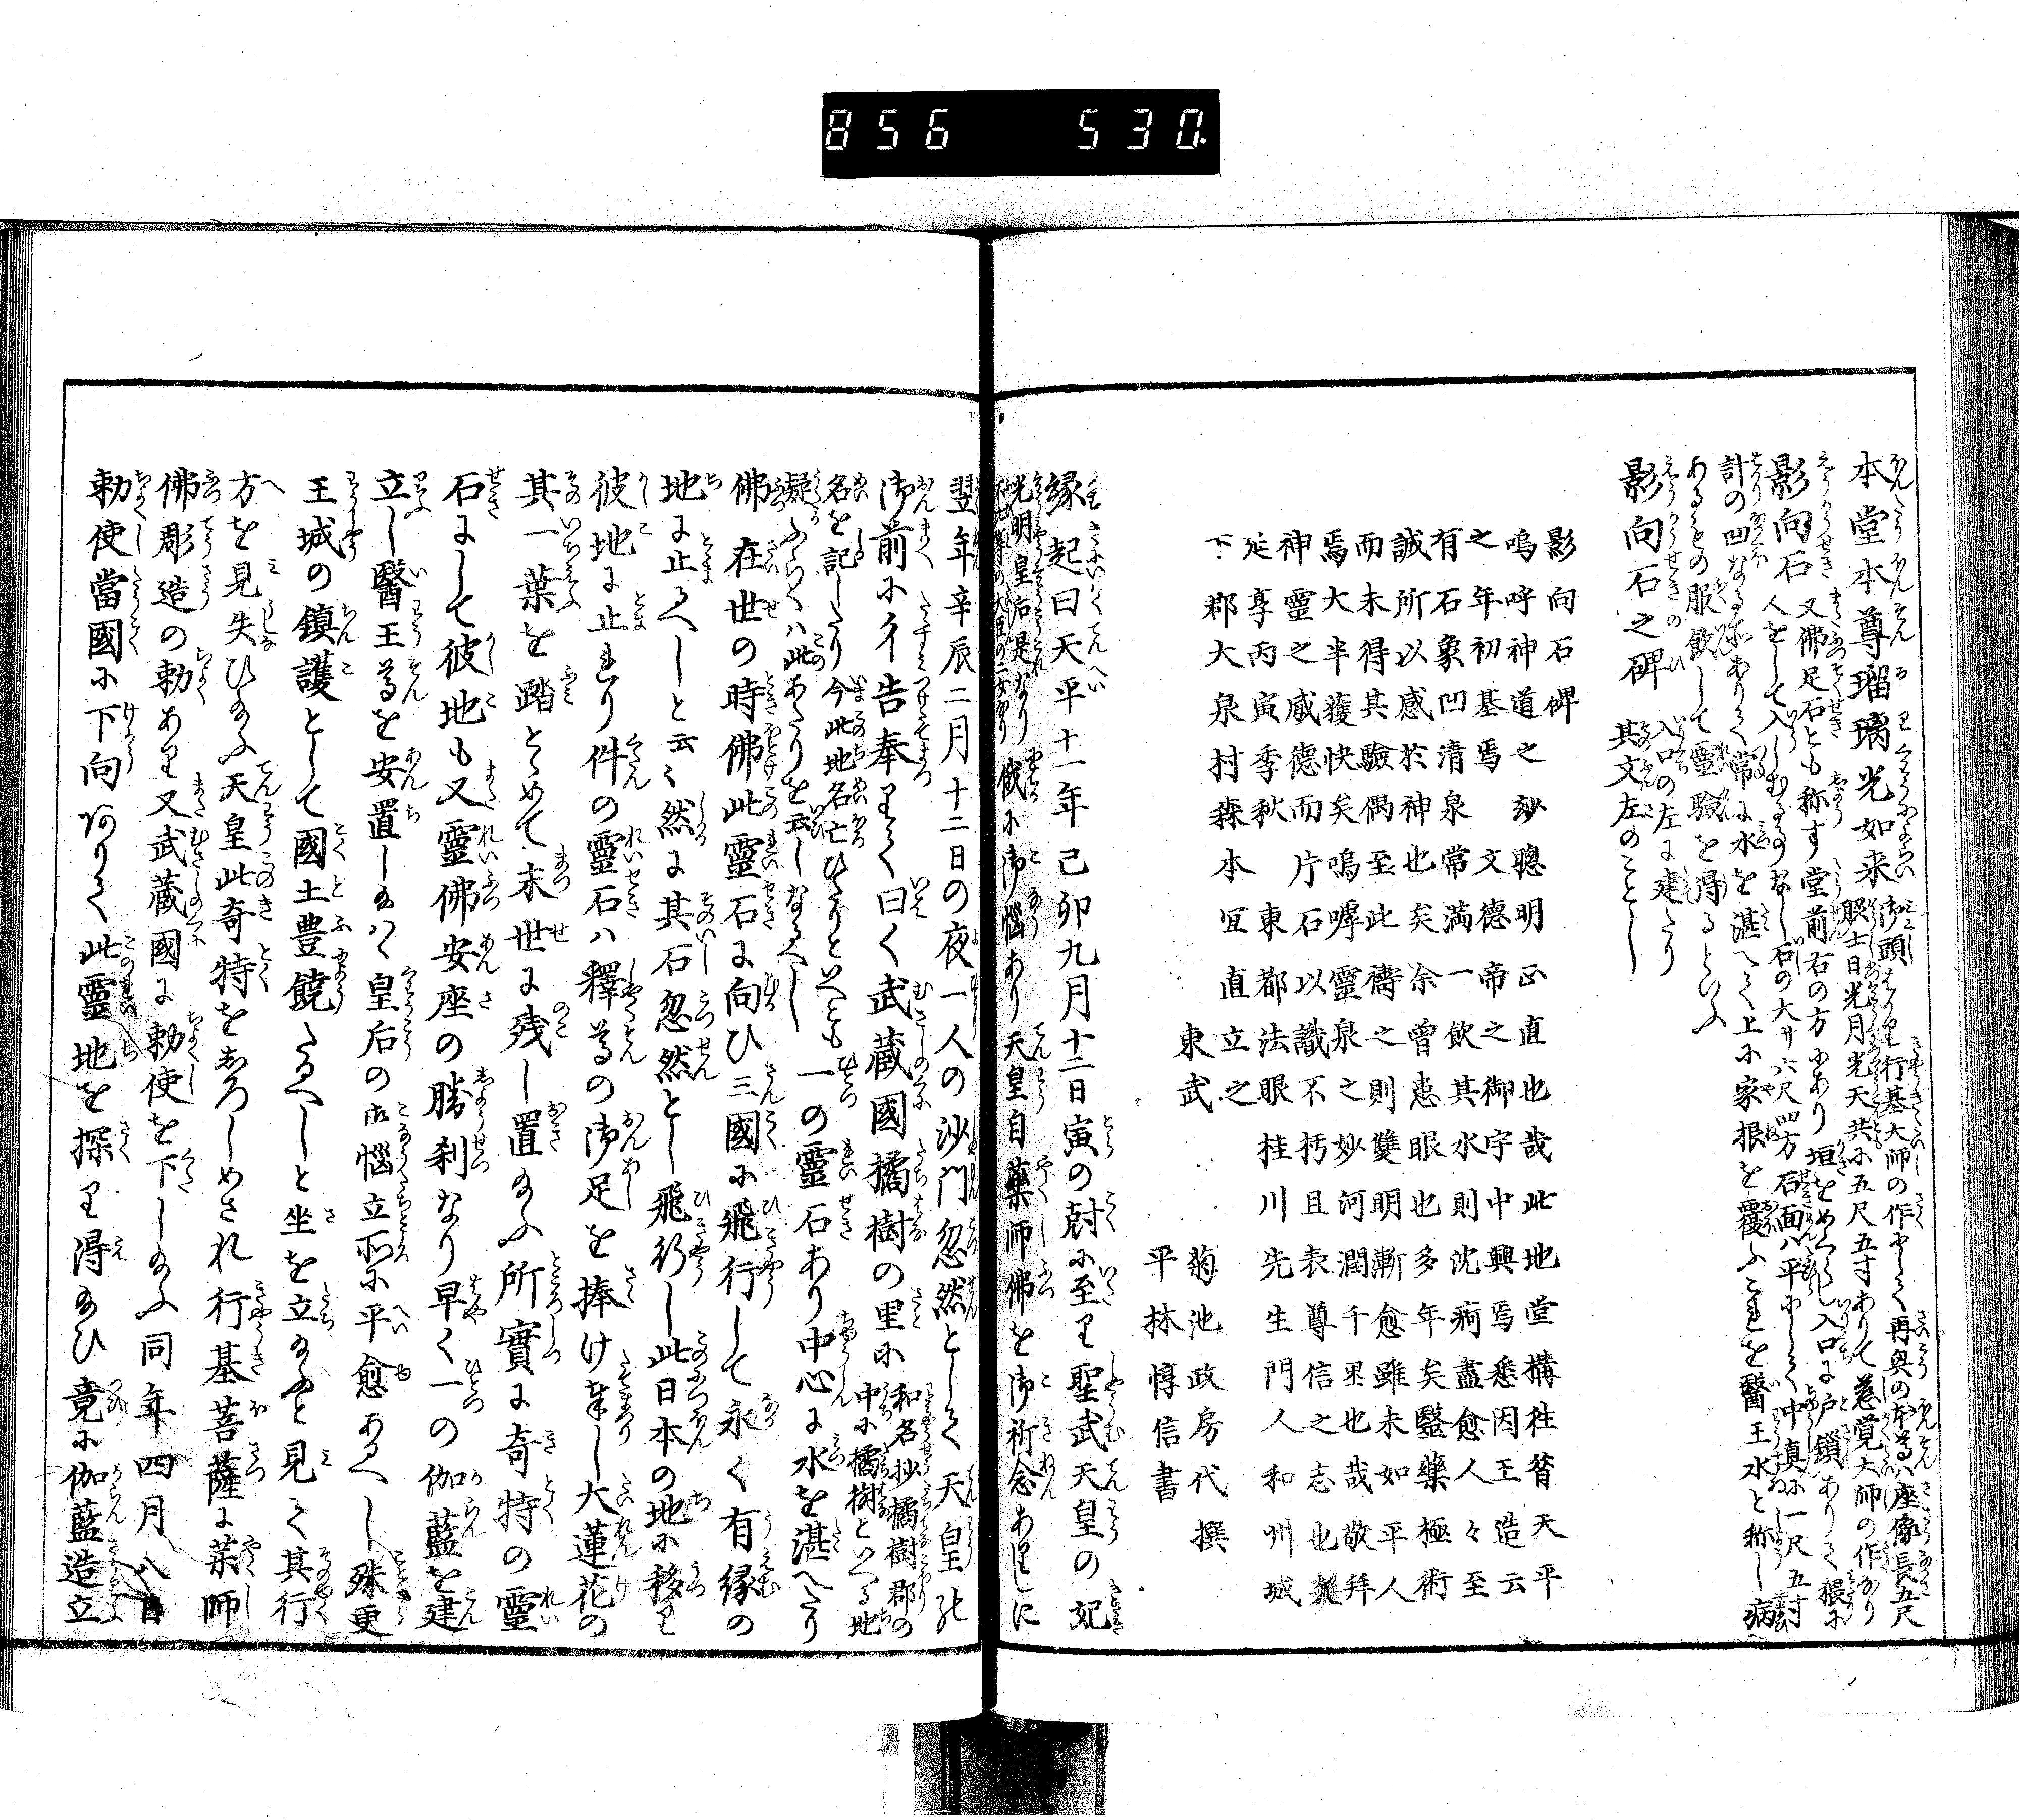 856 530.
本堂本尊瑠璃光如来
御頭はかり行基大師の作にして再興の本尊ハ座像長五尺
脇士日光月光天共に五尺五寸ありて慈覚大師の作なり
影向石
又佛足石とも称す堂前右の方にあり垣をめくらし入口に戸鎖ありて猥に
人をして入しむるなし石の大サ六尺四方石面ハ平にして中真に一尺五寸
計の凹なる所ありて常に水を湛へて上に家根を覆ふこれを醫王水と称し病
あるもの服飲して靈驗を得るといふ
影向石之碑
入口の左に建たり
其文左のことし
影向石碑
嗚呼神道之玅聰明正直也哉此地堂構往昔天平
之年初基焉文德帝之御宇中興焉悉因王造云
有石象凹清泉常満一飲其水則沈痾盡愈人々至
誠所以感於神也矣余曾患眼也多年矣毉藥極術
而未得其驗偶至此禱之則雙明漸愈雖未如平人
焉大半獲快矣嗚嘑靈泉之妙河潤千里也哉敬拜
神靈之威德而片石以識不朽且表尊信之志也
延享丙寅季秋東都法眼桂川先生門人和州城
下郡大泉村森本宜直立之
東武 菊池政房代撰
平林惇信書
縁起曰天平十一年己卯九月十二日寅の尅に至り聖武天皇の妃
光明皇后是なり
俄に御惱あり天皇自藥師佛を御祈念ありしに
翌年辛辰二月十二日の夜一人の沙門忽然として天皇の
御前に来告奉りて曰く武蔵國橘樹の里に
和名抄橘樹郡の
中に橘樹といへる地
名を記したり今此地名亡ひたりといへとも
疑ふらくハ此あたりを云しなるへし
一の靈石あり中心に水を湛へたり
佛在世の時佛此靈石に向ひ三國に飛行して永く有縁の
地に止るへしと云々然に其石忽然とし飛行し此日本の地に移り
彼地に止まれり件の靈石ハ釋尊の御足を捧け奉し大蓮花の
其一葉を踏とゝめて末世に残し置給ふ所實に奇特の靈
石にして彼地も又靈佛安座の勝刹なり早く一の伽藍を建
立し醫王尊を安置し給はく皇后の御惱立所に平愈あるへし殊更
王城の鎮護として國土豊饒たるへしと坐を立給ふと見て其行
方を見失ひ給ふ天皇此奇特をしろしめされ行基菩薩に薬師
佛彫造の勅あり又武蔵國に勅使を下し給ふ同年四月八日
勅使當國に下向ありて此靈地を探り得給ひ竟に伽藍造立